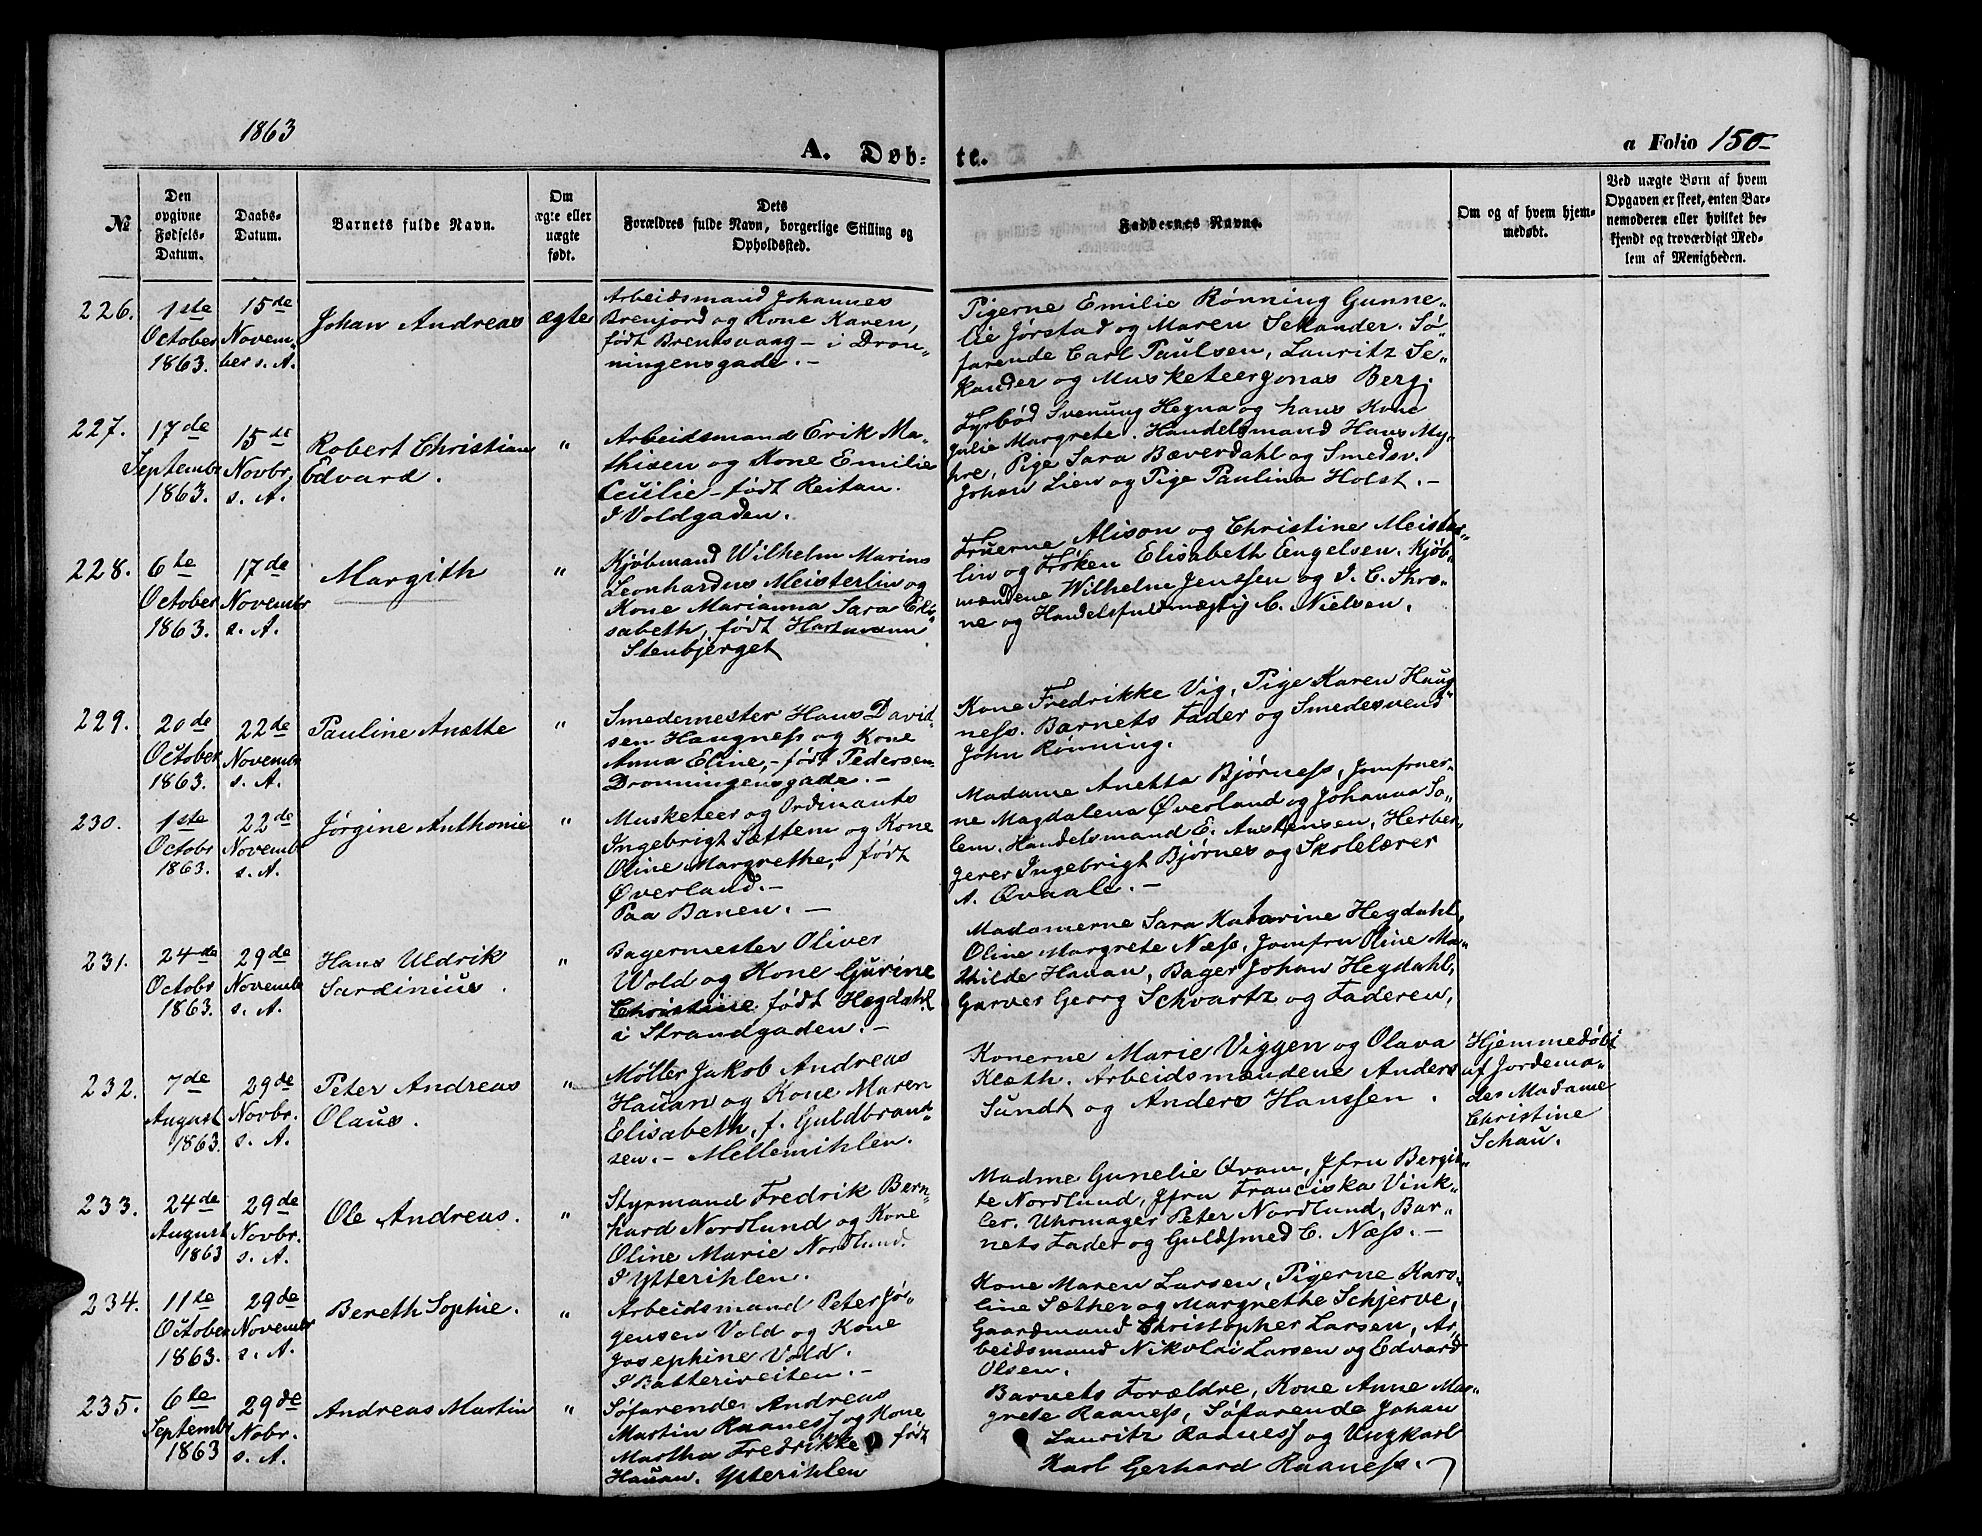 1863
A. Døb-
te.
a Folio 150
№
Den
opgivne
Fødsels-
Datum.
Daabs-
Datum.
Barnets fulde Navn.
Om
ægte eller
uægte
født.
Dets
Forældres fulde Navn, borgerlige Stilling og
Opholdssted.
Faddernes Navne.
Om og af hvem hjem-
medøbt.
Ved uægte Børn af hvem
Opgaven er skeet, enten Bar-
nemoderen eller hvilket be-
kjendt og troværdigt Med-
lem af Menigheden.
226.
1ste
October
1863.
15de
Novem-
ber s. A.
Johan Andreas
ægte
Arbeidsmand Johannes
Brenjord og Kone Karen,
født Brentsvaag - i Dron-
ningensgade. -
Pigerne Emilie Rønning Gunne-
lie Jørstad og Maren Sekander. Sø-
farende Carl Paulsen, Lauritz Se-
kander og Musketeer Jonas Berg.
227.
17de
Septembr
1863.
15de
Novbr.
s. A.
Robert Christian
Edvard.
"
Arbeidsmand Erik Ma-
thisen og Kone Emilie
Cecilie - født Reitan.
I Voldgaden.
Fyrbød Svenung Hegna og hans Kone
Julie Margrete. Handelsmand Hans My-
hre, Pige Sara Bæverdahl og Smedsv.
Johan Lien og Pige Paulina Holst. -
228.
6te
October
1863.
17de
Novembr
s. A.
Margith
"
Kjøbmand Wilhelm Marius
Leonhardus Meisterlin og
Kone Marianna Sara Eli-
sabeth, født Hartmann
Stenbjerget
Fruerne Alison og Christine Meister-
lin og Frøken Elisabeth Engelsen. Kjøb-
mændene Wilhelm Jenssen og J. C. Thro-
ne og Handelsfuldmægtig C. Nielsen.
229.
20de
October
1863.
22de
Novembr
s. A.
Pauline Anætte
"
Smedemester Hans David-
sen Haugness og Kone
Anna Eline, - født Pedersen
Dronningensgade. -
Kone Fredrikke Vig, Pige Karen Haug-
ness. Barnets Fader og Smedesvend
John Rønning.
230.
1ste
Octobr
1863.
22de
Novembr
s. A.
Jørgine Anthonie
"
Musketeer og Ordinants
Ingebrigt Sættem og Kone
Oline Margrethe, født
Øverland. -
Paa Banen. -
Madame Anetta Bjørness, Jomfruer-
ne Magdalena Øverland og Johanna So-
lem. Handelsmand E. Austensen, Herber-
gerer Ingebrigt Bjørnes og Skolelærer
A. Ovaale. -
231.
24de
Octobr
1863.
29de
Novembr
s. A.
Hans Uldrik
Sardinius.
"
Bagermester Oliver
Wold og Kone Gurine
Christine født Hegdahl
i Strandgaden. -
Madamerne Sara Katarine Hegdahl,
Oline Margrete Næss, Jomfru Oline Ma-
thilde Hauan, Bager Johan Hegdahl,
Garver Georg Schvartz og Faderen,
232.
7de
August
1863.
29de
Novbr.
s. A.
Peter Andreas
Olaus.
"
Møller Jakob Andreas
Hauan og Kone Maren
Elisabeth, f. Guldbrand-
sen. - Mellemihlen.
Konerne Marie Viggen og Olava
Klæth. Arbeidsmændene Anders
Sundt og Anders Hanssen.
Hjemmedøbt
af Jordemo-
des Madame
Christine
Schau.
233.
24de
August
1863
29de
Novbr.
s. A.
Ole Andreas.
"
Styrmand Fredrik Bern-
hard Nordlund og Kone
Oline Marie Nordlund.
I Ytterihlen.
Madme Gunelie Ovam, Jfru Bergit-
te Nordlund, Jfru Franciska Vink-
ler. Uhrmager Peter Nordlund, Bar-
nets Fader og Guldsmed C. Næss. -
234.
11te
October
1863.
29de
Novembr
s. A.
Bereth Sophie.
"
Arbeidsmand Peter Jør-
gensen Vold og Kone
Josephine Vold.
I Batteriveiten. -
Kone Maren Larsen, Pigerne Karo-
line Sæther og Margrethe Schjerve,
Gaardmand Christopher Larsen, Ar-
beidsmand Nikolai Larsen og Edvard
Olsen.
235.
6te
Septembr
1863
29de
Nobr.
s. A.
Andreas Martin
"
Søfarende Andreas
Martin Raaness og Kone
Martha Fredrikke født
Hauan. Ytterihlen
Barnets Forældre, Kone Anne Mar-
grete Raaness, Søfarende Johan
Lauritz Raaness og Ungkarl
Karl Gerhard Raaness. -